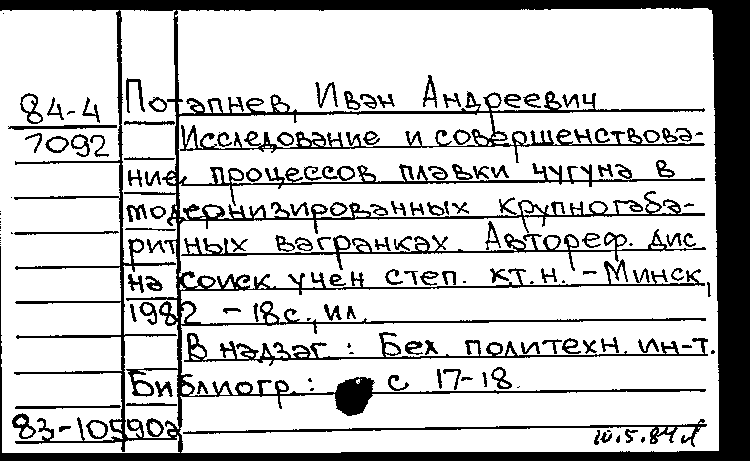 84-4
7092
Потапнев, Иван Андреевич
Исследование и совершенствова-
ние процессов плавки чугуна в
модернизированных крупногаба-
ритных вагранках. Автореф. дис
на соиск. учен степ. кт.н. - Минск,
1982 - 18с., ил.
В надзаг : Бел. политехн. ин-т.
Библиогр.: с 17-18
83-105902
10.5.84